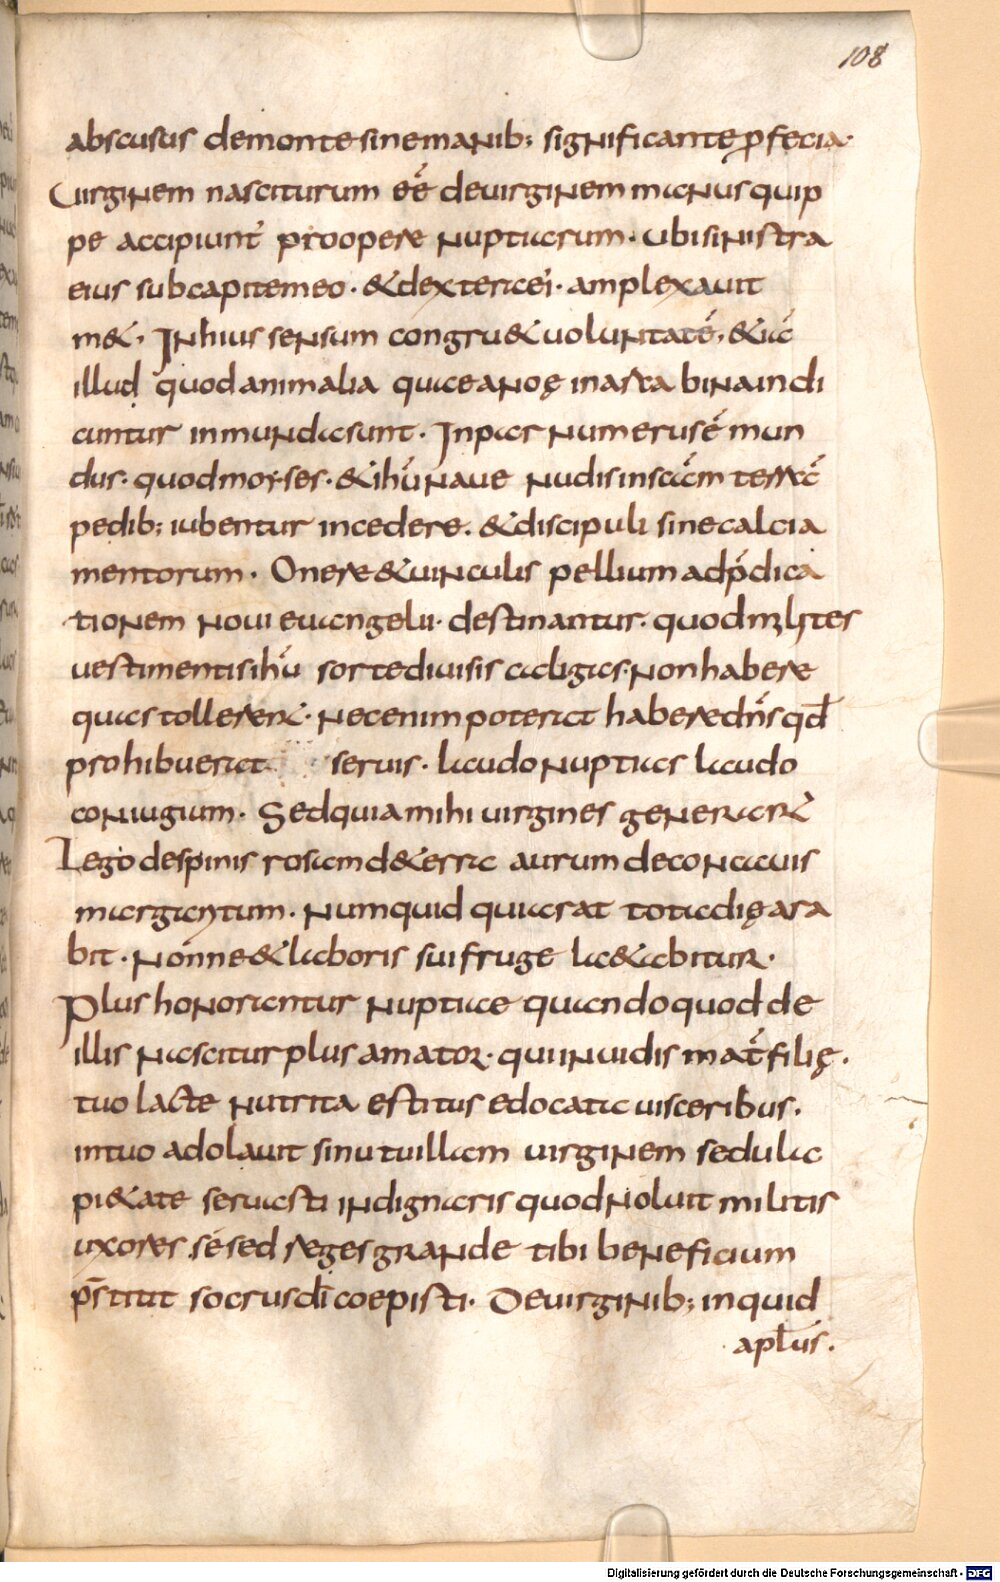 108
abscusus demonte sine manib; significante p̱fecia·
Uirginem nasciturum eē de uirginem manus quip
pe accipiunt̄ pro opere nuptiarum· ubi sinistra
eius sub capitemeo· & dextera ei· amplexauit
m&· In hius sensum congru& uoluntatē· & iā
illud quod animalia quae a noę in arca bina indi
cuntur inmunda sunt· Inpar numerus ē mun
dus· quod moyses· & ihū naue nudis in scām terrā
pedib; iubentur incedere· & discipuli sine calcia
mentorum· Onere & uinculis pellium ad p̄dica
tionem noui euangelii· destinantur· quod milites
uestimentis ihū sorte diuisis caligas· non habere
quas tollerent· Nec enim poterat habere dn̄s qd̄
prohibuerat seruis· laudo nuptias laudo
coniugium· Sed quia mihi uirgines generar̄
Lego de spinis rosam de terra aurum de concauis
margaritum· Numquid qui arat tota dię ara
bit· Nonne & laboris sui fruge laetabitur·
Plus honorantur nuptiae quando quod de
illis nascitur plus amator· qui inuidis mat̄ filię·
tuo lacte nutrita est itus edocata uisceribus·
in tuo adolauit sinu tu illam uirginem sedula
pi&ate seruasti indignaris quod noluit militis
uxores sē sed reges grande tibi beneficium
p̄stitit socrus dī coepisti· De uirginib; inquid
apl̄us·
Digitalisierung gefördert durch die Deutsche Forschungsgemeinschaft - DFG